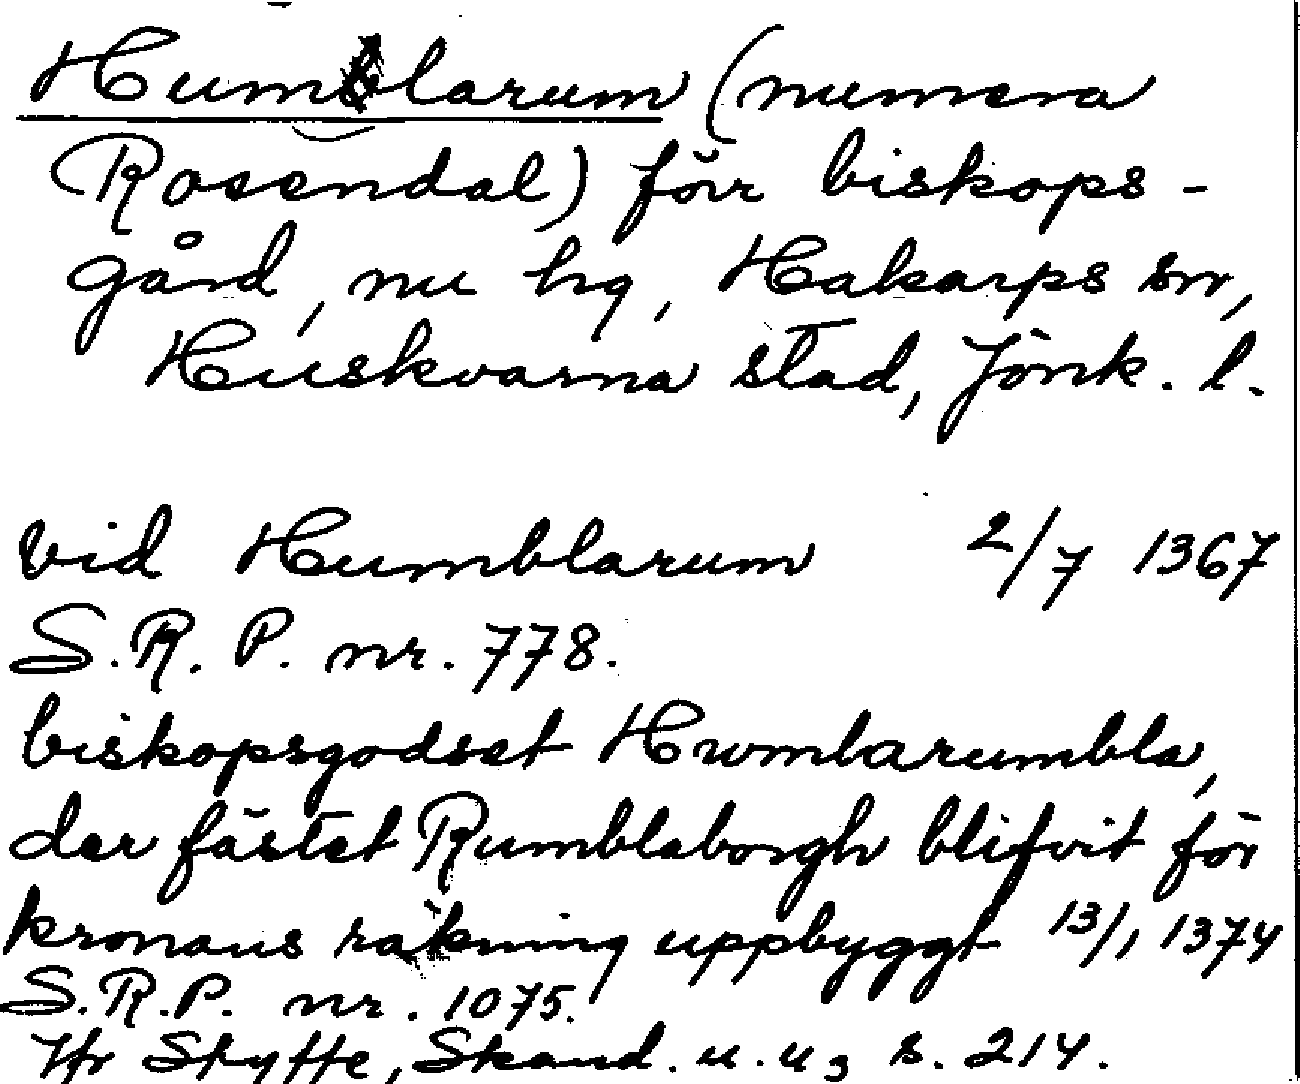 Humblarum (numera
Rosendal) förr biskops-
gård, nu hg, Hakarps sn,
Huskvarna stad, Jönk. l.
vid Humblarum 2/7 1367
S.R.P. nr. 778.
biskopsgodset Humlarumbla,
der fästet Rumblaborgh blifvit för
kronans räkning uppbyggt 13/1 1374
S.R.P. nr. 1075.
Jfr Styffe, Skand. u. u, s. 214.